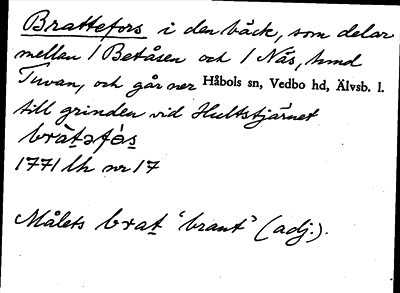 Brattefors i den bäck, som delar
mellan 1 Betåsen och 1 Näs,
Tuvan, och går ner Håbols sn, Vedbo hd, Älvsb. l.
till grinden vid Hultstjärnet
1771 lh nr 17
Målets brat̲ ‘brant’ (adj.).